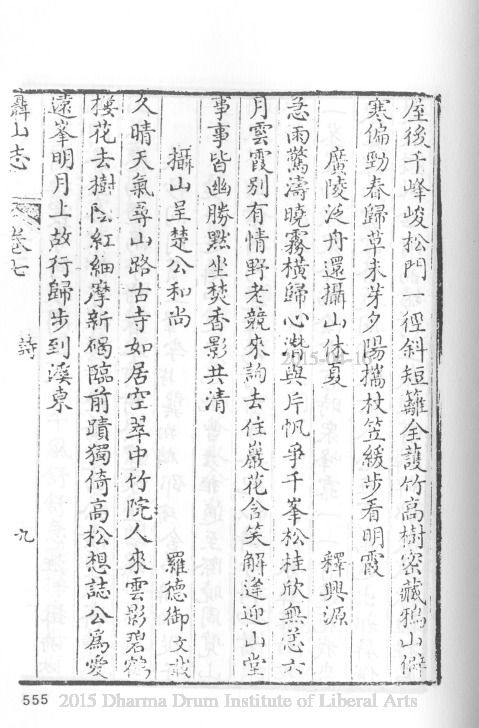 屋後千峰峻松門一徑斜短籬全護竹高樹密藏鴉山僻
寒偏勁春歸草未芽夕陽攜杖笠緩步看明霞
廣陵泛舟還攝山休夏 釋興源
急雨驚濤曉霧橫歸心漸與片帆爭千峯松桂欣無恙六
月雲霞別有情野老競來詢去住巖花含笑解逢迎山堂
事事皆幽勝默坐焚香影共清
攝山呈楚公和尚 羅德御
久晴天氣尋山路古寺如居空翠中竹院人來雲影碧鶴
樓花去樹陰紅細摩新碣臨前蹟獨倚高松想誌公爲愛
遠峯明月上故行歸步到溪東
攝山志 卷七 詩 九
555
2015 Dharma Drum Institute of Liberal Arts